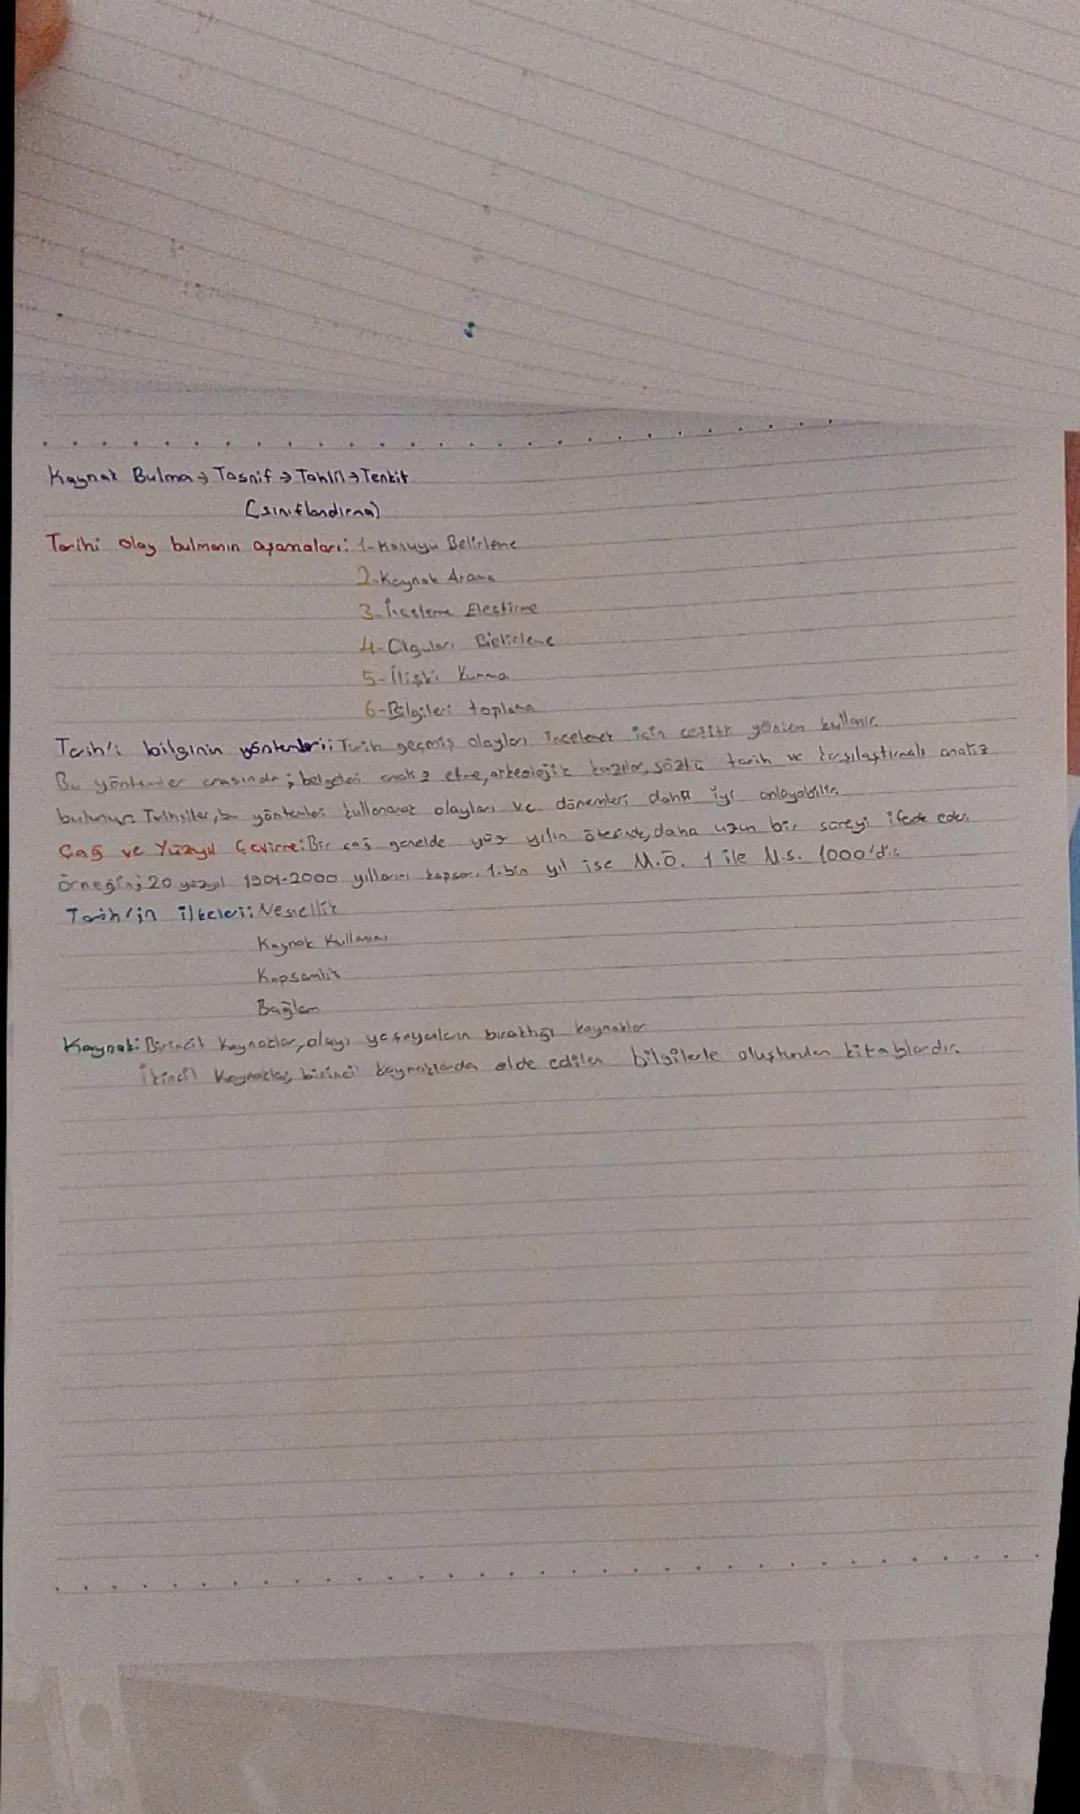 Kaynak Bulma → Tasnif → Tahlil → Tenkit
(sınıflandırma)
Tarihi olay bulmanın aşamaları: 1-Konuyu Belirleme
2-Kaynak Arama
3-İnceleme Eleştirme
4-Olguları Belirleme
5-İlişki Kurma
6-Bilgileri toplama
Tarih'i bilginin yöntemleri: Tarih geçmiş olayları incelemek için çeşitli yöntem kullanır.
Bu yöntemler arasında; belgeleri analiz etme, arkeolojik kazılar, sözlü tarih ve karşılaştırmalı analiz
bulunur. Tarihçiler, bu yöntemleri kullanarak olayları ve dönemleri daha iyi anlayabilir.
Çağ ve Yüzyıl Çevirme: Bir çağ genelde yüz yılın ötesinde, daha uzun bir süreyi ifade eder.
Örneğin; 20. yüzyıl 1901-2000 yıllarını kapsar. 1. bin yıl ise M.Ö. 1 ile M.S. 1000'dir.
Tarih'in ilkeleri: Nesnellik
Kaynak Kullanımı
Kapsamlık
Bağlam
Kaynak: Birincil Kaynaklar, olayı yaşayanların bıraktığı kaynaklar
İkincil Kaynaklar, birincil kaynaklarda elde edilen bilgilerle oluşturulan kitablardır.